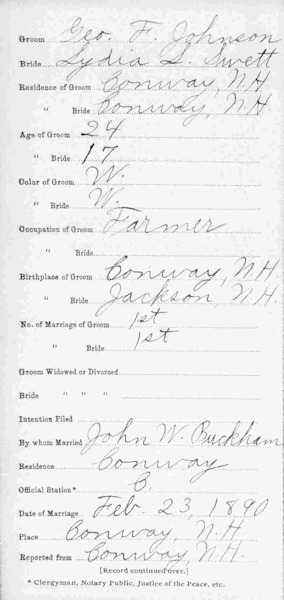 Groom Geo. F. Johnson
Bride Lydia L. Swett
Residence of Groom Conway, N.H
" Bride Conway, N.H
Age of Groom 24
" Bride 17
Color of Groom W.
" Bride W.
Occupation of Groom Farmer
" Bride
Birthplace of Groom Conway, N.H
" Bride Jackson, N.H.
No. of Marriage of Groom 1st
" Bride 1st
Groom Widowed or Divorced
Bride " " "
Intention Filed
By whom Married John W. Buckham
Residence Conway
Official Station* C.
Date of Marriage Feb. 23, 1890
Place Conway, N.H
Reported from Conway, N.H.
[Record continued over.]
* Clergyman, Notary Public, Justice of the Peace, etc.